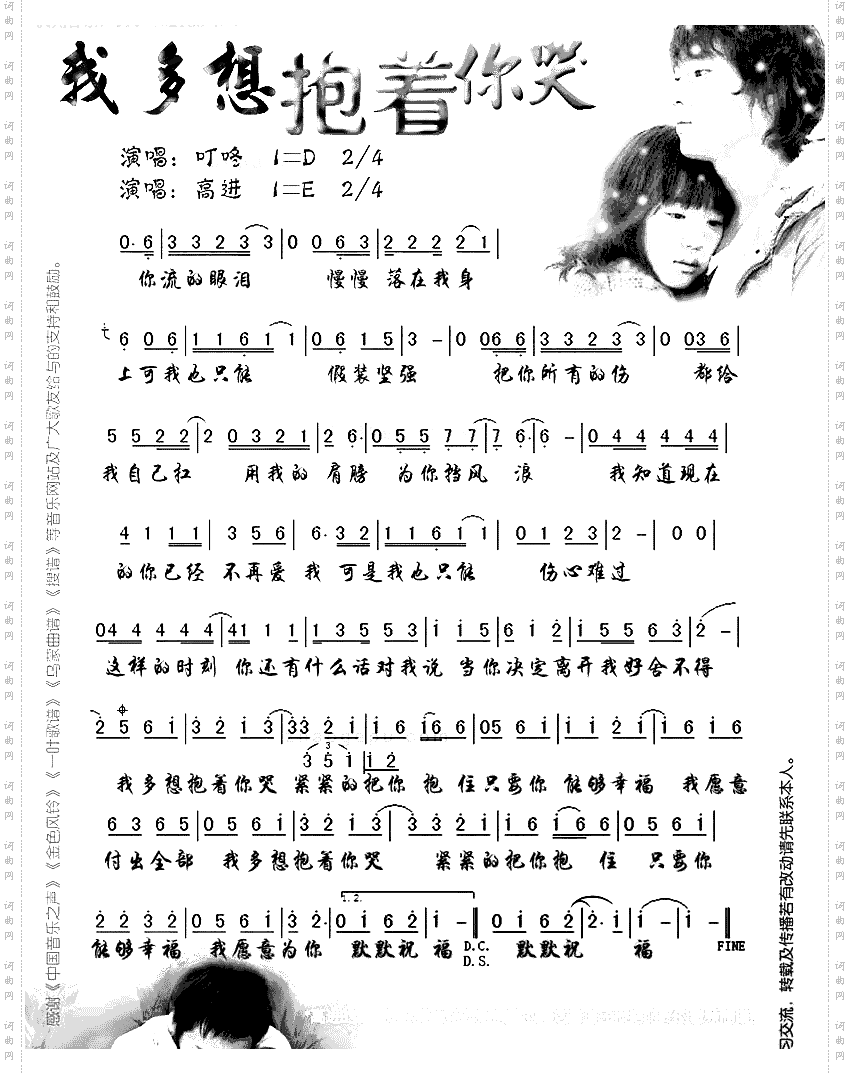 我多想抱着你哭
演唱：叮咚 1=D 2/4
演唱：高进 1=E 2/4
0· 6 | 3 3 2 3 3 | 0 0 6 3 | 2 2 2 2 1 |
你流的眼泪 慢慢 落在我身
6 0 6 | 1 1 6 1 1 | 0 6 1 5 | 3 － | 0 06 6 | 3 3 2 3 3 | 0 03 6 |
上可我也只能 假装坚强 把你所有的伤 都给
5 5 2 2 | 2 0 3 2 1 | 2 6· | 0 5 5 7 7 | 7 6· | 6 － | 0 4 4 4 4 4 |
我自己扛 用我的 肩膀 为你挡风 浪 我知道现在
4 1 1 1 | 3 5 6 | 6· 3 2 | 1 1 6 1 1 | 0 1 2 3 | 2 － | 0 0 |
的你已经 不再爱 我 可是我也只能 伤心难过
04 4 4 4 4 | 41 1 1 | 1 3 5 5 3 | i i 5 | 6 i 2 | i 5 5 6 3 | 2 － |
这样的时刻 你还有什么话对我说 当你决定离开我好舍不得
2 5 6 i | 3 2 i 3 | 33 2 i | i 6 i6 6 | 05 6 i | i i 2 i | i 6 i 6
3
3 5 i | i 2
我多想抱着你哭 紧紧的把你 抱 住只要你 能够幸福 我愿意
6 3 6 5 | 0 5 6 i | 3 2 i 3 | 3 3 2 i | i 6 i 6 6 | 0 5 6 i |
付出全部 我多想抱着你哭 紧紧的把你抱 住 只要你
1. 2.
2 2 3 2 | 0 5 6 i | 3 2· | 0 i 6 2 | i － ‖ 0 i 6 2 | 2· i | i － | i － ‖
能够幸福 我愿意为你 默默祝 福 D.C. 默默祝 福 FINE
D.S.
感谢《中国音乐之声》《金色风铃》《一叶歌谱》《乌蒙曲谱》《搜谱》等音乐网站及广大歌友给与的支持和鼓励。
习交流，转载及传播若有改动请先联系本人。
词曲网